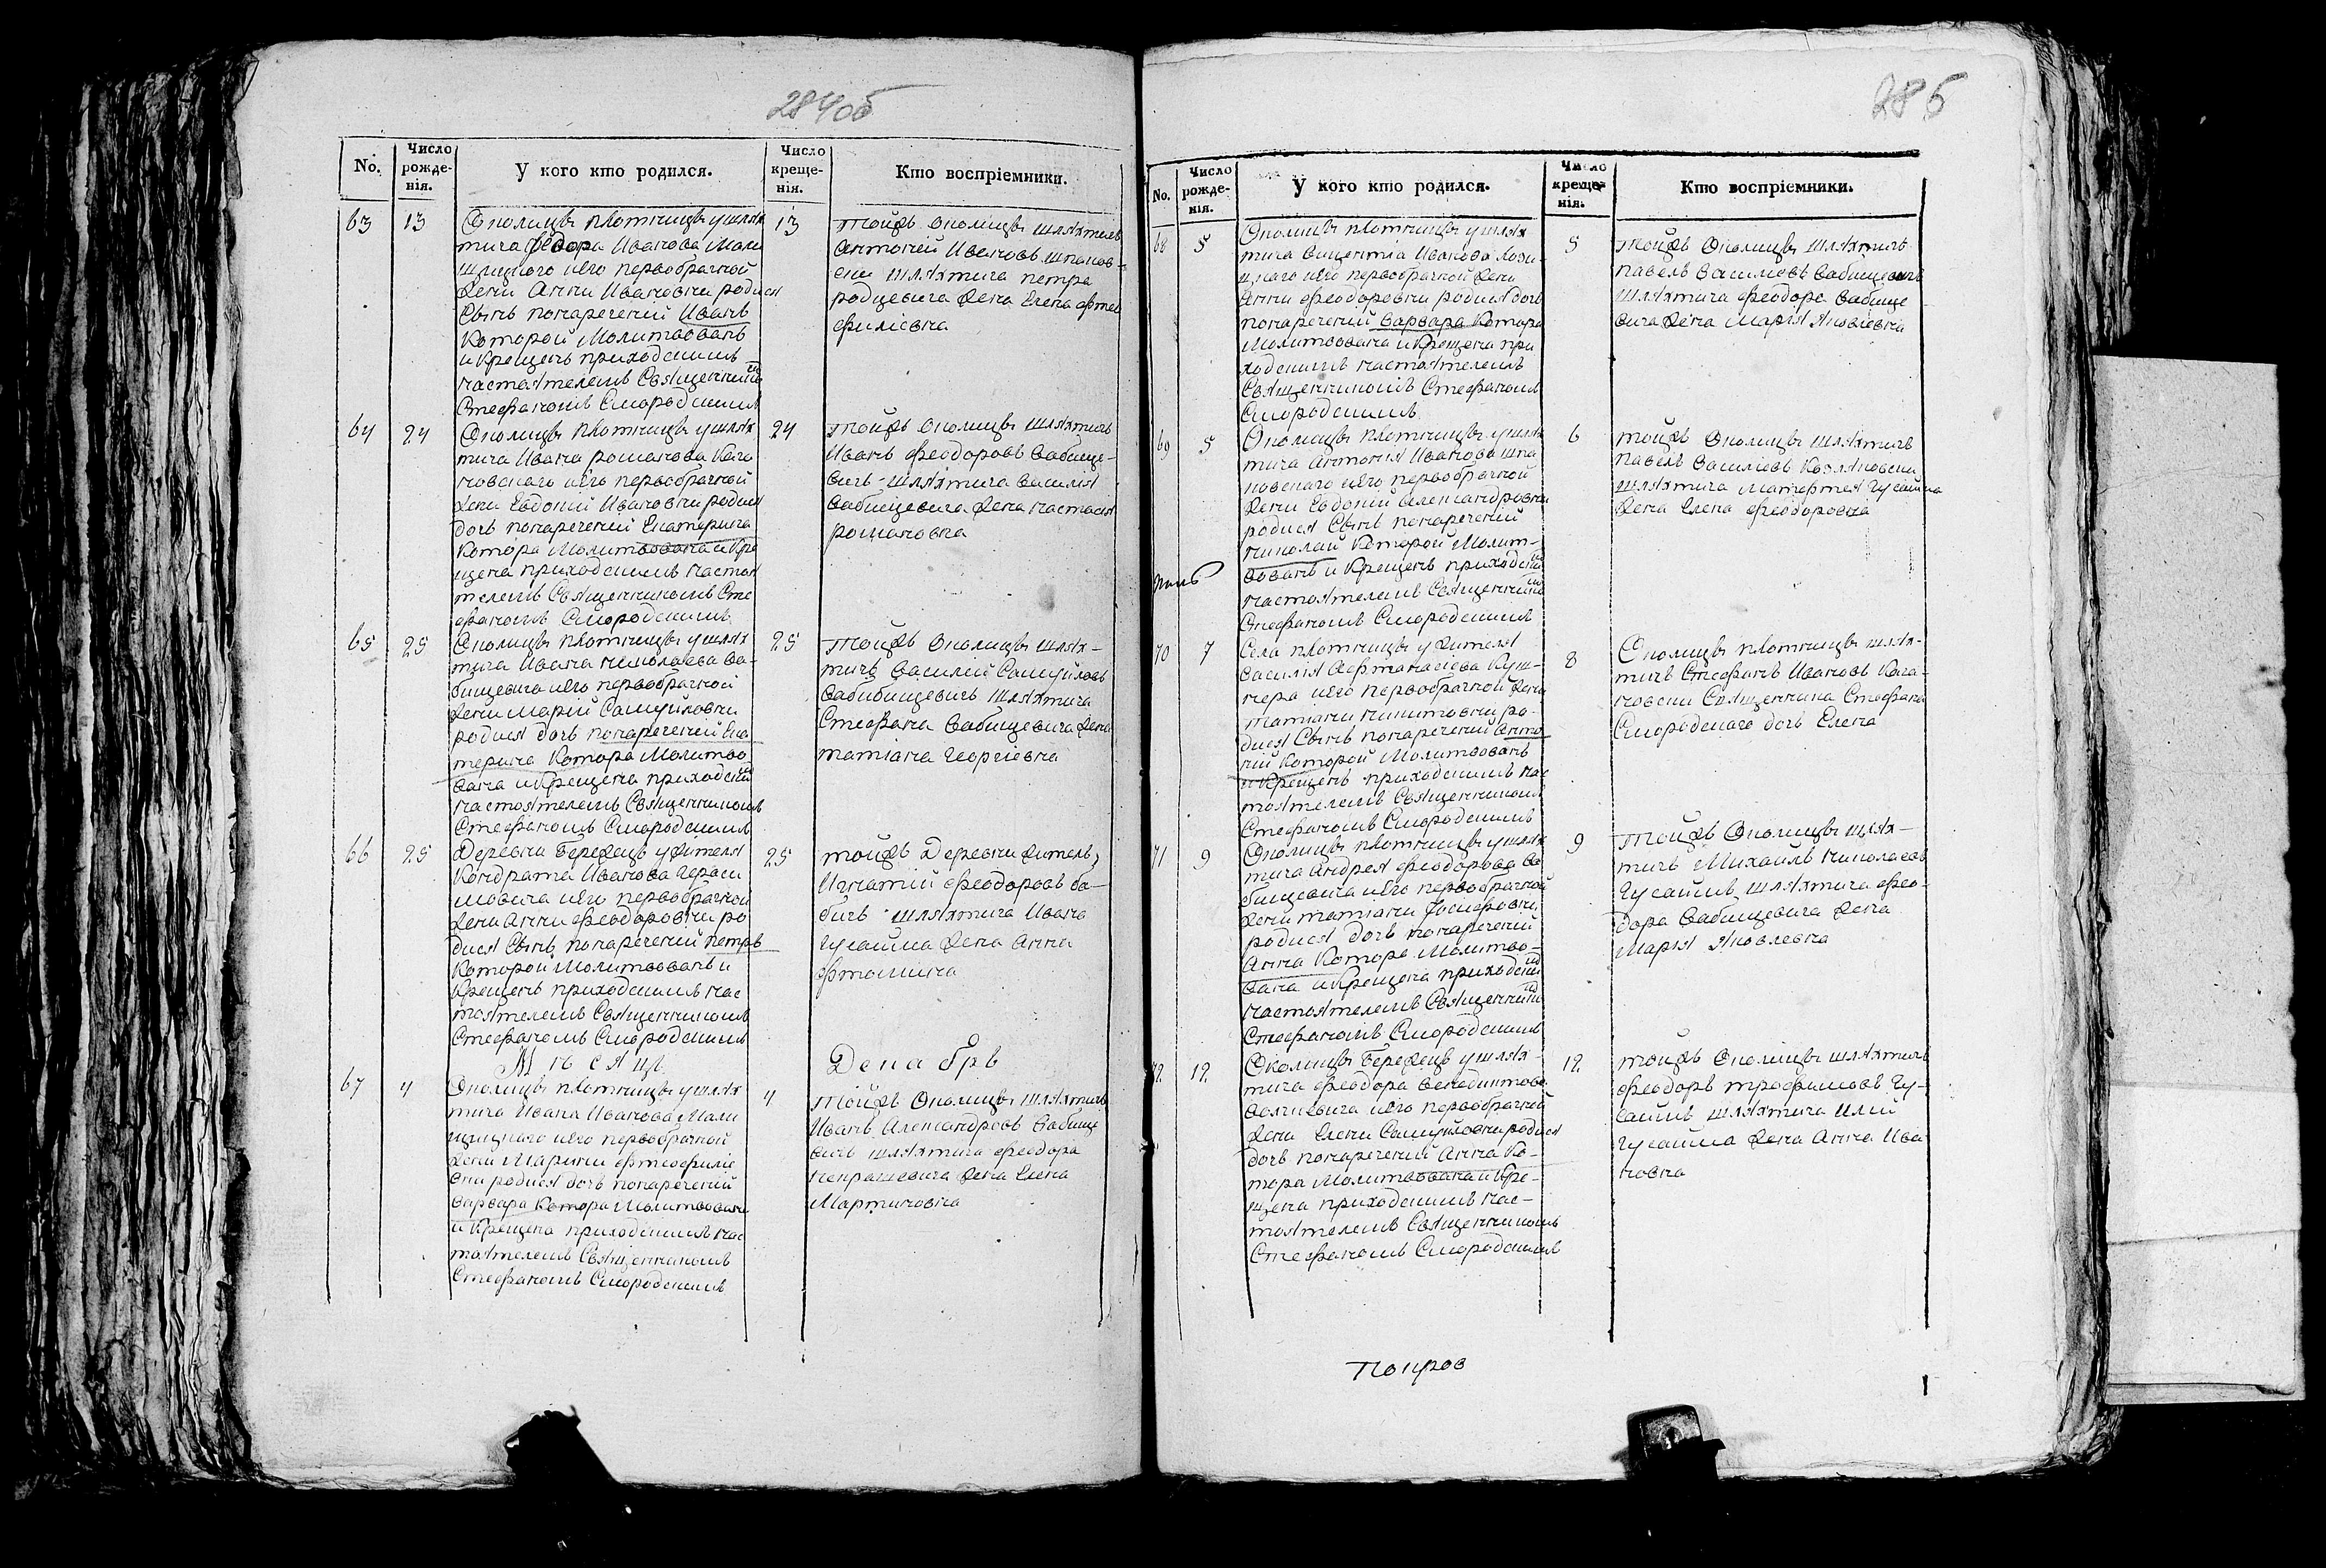 284об
No.
Число рожденія.
У кого кто родился.
Число крещенія.
Кто воспріемники.
63 13
Околицы плотницы у шлях
тича федора Иванова Мали
щицкого иего первобрачной
жени Анни Ивановни родися
Сынъ понареченій Иванъ
Которой Молитвованъ
и Крещенъ приходскимъ
настоятелемъ Священником
Стефаномъ Смородскимъ
13
тойжъ Околицы шляхтичъ
Антоній Ивановъ шпаков-
ски шляхтича петра
родцевича жена Елена фтео
филіевна
64 24
Околицы плотницы у шлях
тича Ивана романова Кага
новскаго иего первобрачной
жени Евдокій Ивановни родися
дочь понареченій Екатерина
Котора Молитвована и Кре
щена приходскимъ настоя
телемъ Священникомъ Сте
фаномъ Смородскимъ
24
тойжъ Околицы шляхтичъ
Иванъ феодоровъ Вабище-
вичъ шляхтича Василія
Вабищевича жена настасія
романовна
65 25
Околицы плотницы у шлях
тича Ивана николаева Ва-
бищевича иего первобрачной
жени Марій Самуйловни
родися дочь понареченій Ека
терина Котора Молитво-
вана и Крещена приходским
настоятелемъ Священникомъ
Стефаномъ Смородскимъ
25
тойжъ Околицы шлях-
тичъ Василій Самуйловъ
Вабибищевичъ шляхтича
Стефана Вабищевича жена
татіана Георгіевна
66 25
Деревни Бережецъ у жителя
Кондрата Иванова Гераси
мовича иего первобрачной
жени Анни феодоровни ро
дися Сынъ понареченій петръ
Которой Молитвованъ и
Крещенъ приходскимъ нас
тоятелемъ Священникомъ
Стефаномъ Смородскимъ
25
тойжъ Деревни житель
Игнатій феодоровъ ба-
бичъ шляхтича Ивана
Гусайма жена Анна
фтомина
Мѣсяцъ Декабрь
67 4
Околицы плотницы у шлях
тича Ивана Иванова Мали
щицкаго иего первобрачной
жени Марини фтеофиліе
вни родися дочь понареченій
варвара Котора Молитвована
и Крещена приходскимъ нас
тоятелемъ Священникомъ
Стефаномъ Смородскимъ
4
тойжъ Околицы шляхтичъ
Иванъ Александровъ Вабище
вичъ шляхтича феодора
некрашевича жена Елена
Мартиновна
285
No.
Число рожденія.
У кого кто родился.
Число крещенія.
Кто воспріемники.
68 5
Околицы плотницы у шлях
тича Викентія Иванова Лози
цкаго иего первобрачной жени
Анни феодоровни родися дочь
понареченій варвара Котора
Молитвована и Крещена при
ходскимъ настоятелемъ
Священникомъ Стефаномъ
Смородскимъ
5
тойжъ Околицы шляхтичъ
павелъ Василиевъ Вабищевичъ
шляхтича феодора Вабище
вича жена Марія Яковлевна
69 5
Околицы плотницы у шлях
тича Антонія Иванова шпа
ковскаго иего первобрачной
жени Евдокій Александровни
родися Сынъ понареченій
николай Которой Молит-
вованъ и Крещенъ приходским
настоятелемъ Священником
Стефаномъ Смородскимъ
6
тойжъ Околицы шляхтичъ
павелъ Василіевъ Козляковски
шляхтича Матфтея Гусайма
жена Елена феодоровна
70 7
Села плотницы у жителя
василія Афтанасіева Куш-
нера иего первобрачной жени
татіани никитовни ро-
дися Сынъ понареченій Анто
ній Которой Молитвованъ
и Крещенъ приходскимъ нас
тоятелемъ Священникомъ
Стефаномъ Смородскимъ
8
Околицы плотницы шлях-
тичъ Стефанъ Ивановъ Кага-
новски Священника Стефана
Смородскаго дочь Елена
71 9
Околицы плотницы у шлях
тича Андрея феодорова Ва
бищевича иего первобрачной
жени татіани Іосифовни
родися дочь понареченій
Анна Котора Молитво-
вана и Крещена приходским
настоятелемъ Священником
Стефаномъ Смородскимъ
9
тойжъ Околицы шлях-
тичъ Михаилъ николаевъ
Гусаимъ шляхтича фео-
дора Вабищевича жена
Марія Яковлевна
72 12
Околицы Бережецъ у шлях-
тича феодора
иего первобрачной
жени Елени Самуйловни родися
дочь понареченій Анна Ко-
тора Молитвована и Кре-
щена приходскимъ нас-
тоятелемъ Священникомъ
Стефаномъ Смородскимъ
12
тойжъ Околицы шляхтичъ
феодоръ трофимовъ Гу-
саимъ шляхтича Илій
Гусайма жена Анна Ива
новна
Покров